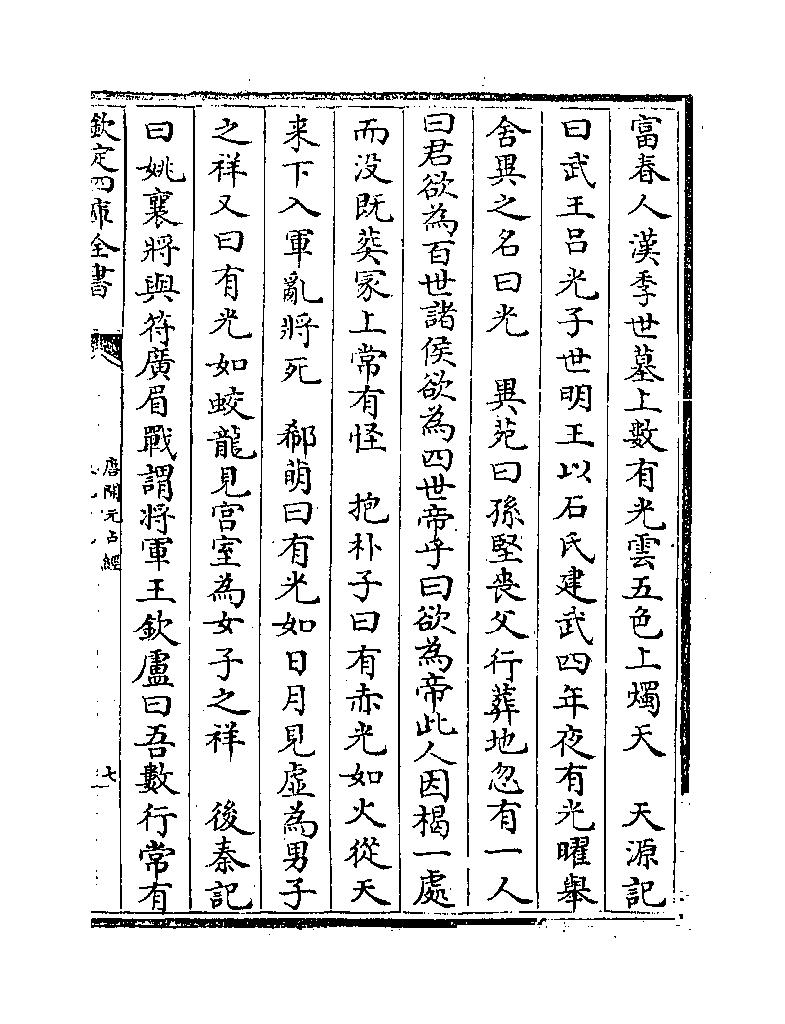 富春人漢季世墓上數有光雲五色上燭天　天源記
曰武王吕光子世明王以石氏建武四年夜有光曜舉
舍異之名曰光　異苑曰孫堅喪父行葬地忽有一人
曰君欲為百世諸侯欲為四世帝乎曰欲為帝此人因楬一處
而没既葬冢上常有怪　抱朴子曰有赤光如火從天
来下入軍亂將死　郗萌曰有光如日月見虚為男子
之祥又曰有光如蛟龍見宫室為女子之祥　後秦記
曰姚襄將與符廣眉戰謂將軍王欽盧曰吾數行常有
欽定四庫全書
唐開元占經
七